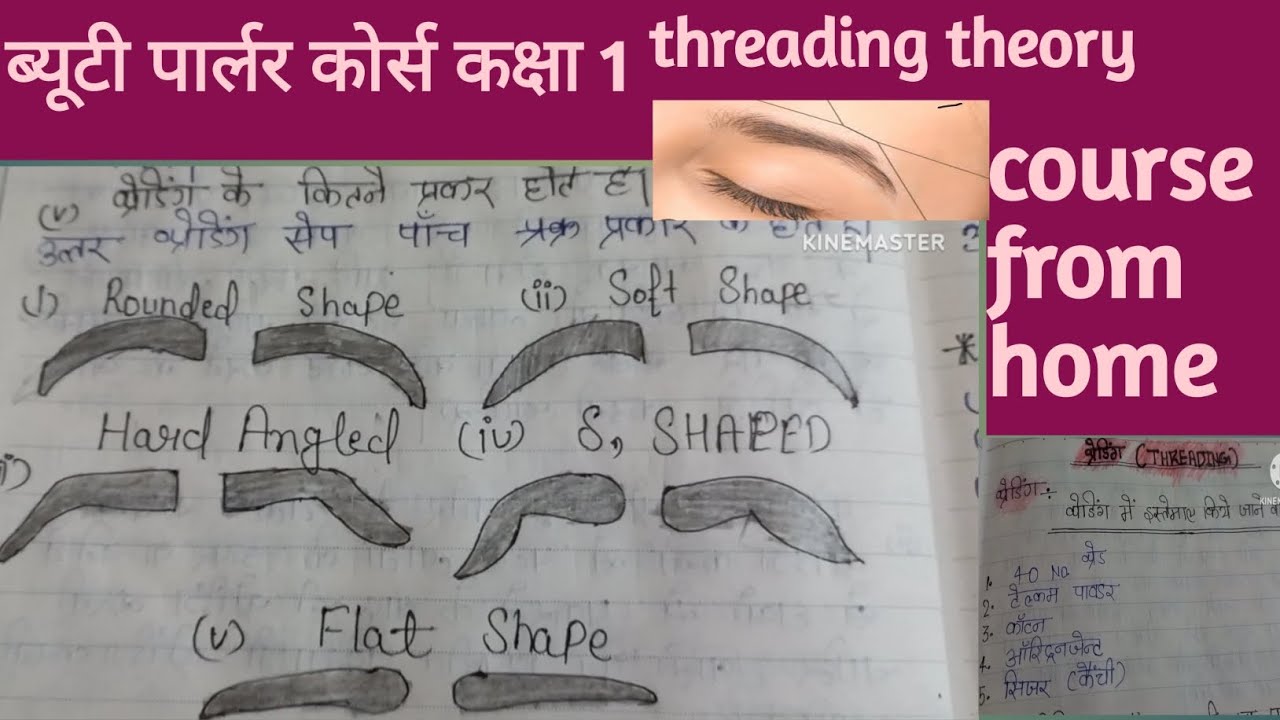 ब्यूटी पार्लर कोर्स कक्षा 1
threading theory
course
from
home
KINEMASTER
(v) थ्रेडिंग के कितने प्रकार होते है।
उत्तर थ्रेडिंग सेप पाँच प्रकार के होते
(i) Rounded Shape
(ii) Soft Shape
Hard Angled
(iv) S, SHAPED
(v) Flat Shape
थ्रेडिंग (THREADING)
थ्रेडिंग :-
थ्रेडिंग में इस्तेमाल किये जाने
1. 40 No. थ्रेड
2. टेल्कम पावडर
3. कॉटन
4. ऑस्ट्रिनजेन्ट
5. सिजर (कैंची)